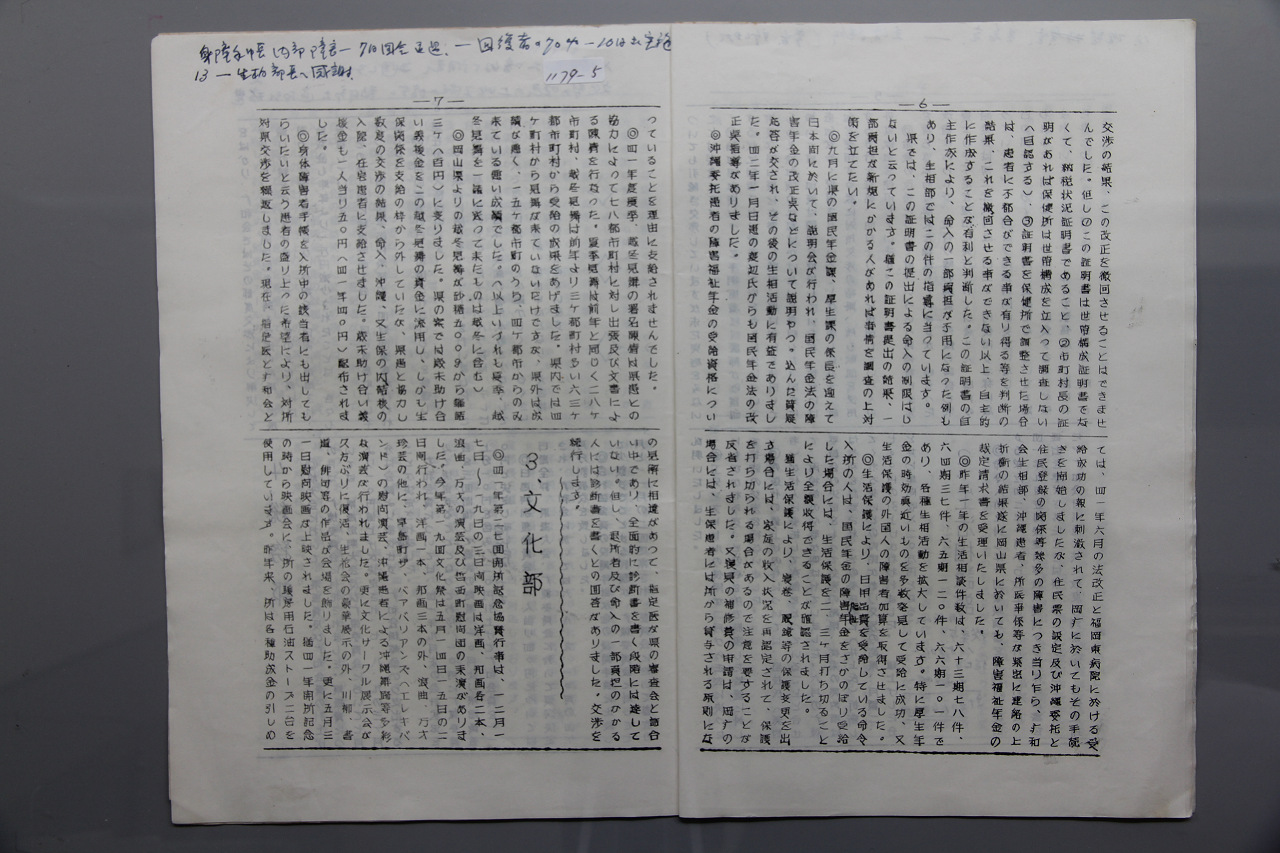 ―6―
交渉の結果、この改正を撤回させることはできませ
んでした。但しのこの証明書は世帯構成証明書でな
くて、納税状況証明書であること、②市町村長の証
明があれば保健所は世帯構成を立入って調査しない
(自認する)、③証明書を保健所で調整させた場合
は、患者に不都合ができる事が有り得る等を判断の
結果、これを撤回させる事ができない以上、自主的
に作成することが有利と判断した。この証明書の自
主作成により、命入の一部負担が不用になった例も
あり、生相部ではこの件の指導に当っています。
県では、この証明書の提出による命入の制限はし
ないと云っています。猶この証明書提出の結果、一
部負担が新規にかかる人があれば事情を調査の上対
策を立てたい。
◎九月に県の国民年金課、厚生課の係長を迎えて
日本間に於いて、説明会が行われ、国民年金法の障
害年金の改正点などについて説明やつっ込んだ質疑
応答が交され、その後の生相活動に有益でありまし
た。四二年一月日患の渡辺氏からも国民年金法の改
正点指導がありました。
◎沖縄委托患者の障害福祉年金の受給資格につい
ては、四一年六月の法改正と福岡東病院に於ける受
給成功の報に刺激されて、岡厂に於いてもその手続
きを開始しましたが、住民票の設定及び沖縄委托と
住民登録の関係等数多の障害につき当り乍ら、厂和
会生相部、沖縄患者、所医事係等が緊密に連絡の上
折衝の結果遂に岡山県に於いても、障害福祉年金の
裁定請求書を受理いたしました。
◎昨年一年の生活相談件数は、六十三期七八件、
六四期三七件、六五期一二〇件、六六期一〇一件で
あり、各種生相活動を拡大しています。特に厚生年
金の時効真近いものを多数発見して受給に成功、又
生活保護の外国人の障害者加算を取得させました。
◎生活保護により、日用品費を受給している命令
入所の人は、国民年金の障害年金をさかのぼり受給
した場合には、生活保護を二、三ケ月打ち切ること
により全額収得できることが確認されました。
猶生活保護により、寝巻、眼鏡等の保護変更を出
す場合には、家庭の収入状況を再認定されて、保護
を打ち切られる場合があるので注意を要することが
反省されました。又寝具の補修費の申請は、岡厂の
場合には、生保患者には所から貸与される原則にな
身障手帳 内部障害一7日国会通過、一回復者の
13一生相部長へ感謝
1179-5
―7―
っていることを理由に支給されませんでした。
◎四一年度夏季、越冬見舞の署名陳情は県患との
協力によって七八都市町村に対し出張及び文書によ
る陳情を行なった。夏季見舞は前年と同じく二八ケ
市町村、越冬見舞は前年より三ケ都町村多い六三ケ
都市町村から受給の成果をあげました。県内では四
ケ町村から見舞が来ていないだけですが、県外は成
績が悪く、一五ケ都市町のうち、四ケ都市からのみ
来ている悪い成績でした。(以上いづれも夏季、越
冬見舞を一緒に寄って来たものは越冬に含む)
◎岡山県よりの越冬見舞が砂糖五〇〇gから福祖
三ケ(八百円)に変りました。県の案では歳末助け合
い義援金をこの越冬見舞の資金に流用し、しかし生
保関係を支給の枠から外していたが、県患と協力し
数度の交渉の結果、命入、沖縄、又生保の
入院、在宅患者に支給させました。歳末助け合い義
援金も一人当り五〇円(四一年四〇円)配布されま
した。
◎身体障害者手帳を入所中の該当者にも出しても
らいたいと云う患者の盛り上った希望により、対所
対県交渉を繰返しました。現在、指定医と厂和会と
の見解に相違があって、指定医が県の審査会と話合
い中であり、全面的に診断書を書く段階には達して
いない。但し、退所者及び命入の一部負担のかかる
人には診断書を書くとの回答がありました。交渉を
続行します。
3、文化部
◎四一年第二七回開所記念協賛行事は、一二月一
七日〜一九日の三日間映画は洋画、邦画各二本、
浪曲、万才の演芸及び吉備町慰問団の来演がありま
した。今年第一九回文化祭は五月一四日一五日の二
日間行われ、洋画一本、邦画三本の外、浪曲、万才
珍芸の他に、早島町ザ・ベアバリアンズ(エレキバ
ンド)の慰問演芸、沖縄患者による沖縄舞踊等多彩
な演芸が行われました。更に文化サークル展示会が
久方ぶりに復活、生花会の豪華展示の外、川柳、書
道、俳句等の作品が会場を飾りました。更に五月三
一日慰問映画が上映されました。猶四一年開所記念
の時から映画会に、所の暖房用石油ストーブ二台を
使用しています。昨年来、所は各種助成金の引しめ